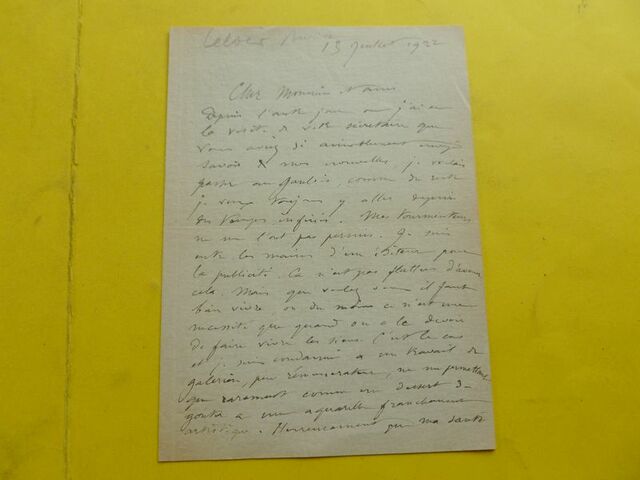 Leloir Maurice
13 Juillet 1922
Cher Monsieur
Depuis l'autre jour où j'ai eu
la visite de votre secrétaire que
vous aviez si aimablement envoyé
savoir mes nouvelles, je voulais
passer au Gaulois, comme du reste
je veux toujours y aller depuis
des temps infinis. Mes tourmenteurs
ne me l'ont pas permis. Je suis
entre les mains d'un éditeur pour
la publicité. Ca n'est pas flatteur d'avouer
cela. Mais que voulez vous il faut
bien vivre ou du moins ce n'est une
necessité que quand on a le devoir
de faire vivre les siens. C'est le cas
et je suis condamné a un travail de
galérien, peu rémunérateur, ne me permettant
que rarement comme un dessert de
gouter a une aquarelle franchement
artistique. Heureusement que ma santé